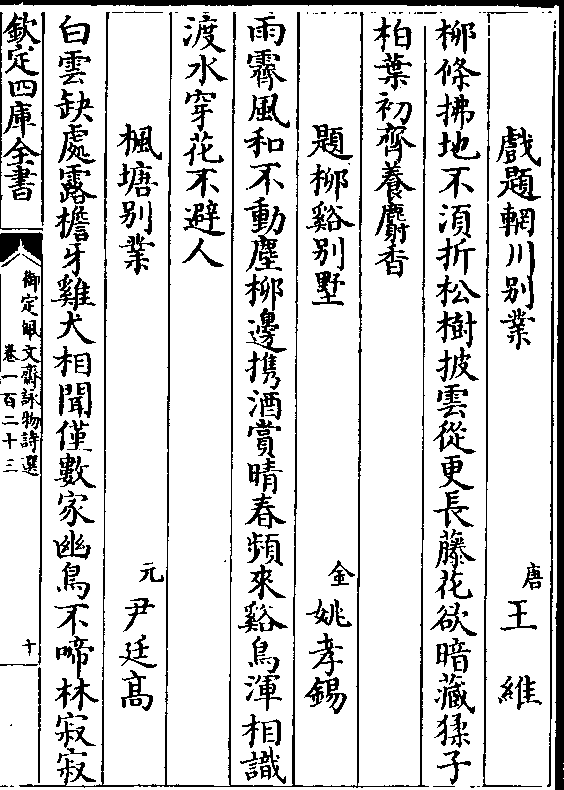 戲題輞川别業　唐王維
柳條拂地不湏折松樹披雲從更長藤花欲暗藏猱子
柏葉初齊養麝香
題柳谿别墅　金姚孝錫
雨霽風和不動塵柳邊携酒賞晴春頻來谿鳥渾相識
渡水穿花不避人
楓塘别業　元尹廷髙
白雲缺處露檐牙雞犬相聞僅數家幽鳥不啼林寂寂
欽定四庫全書
御定佩文齋詠物詩選
卷一百二十三
十